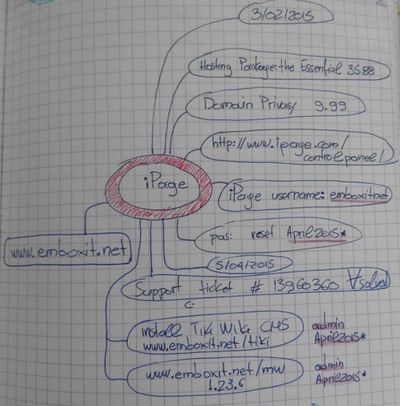 3/02/2015
Hosting Package: the Essential 35.88
Domain Privacy 9.99
http://www.ipage.com/
controlpanel/
iPage
iPage username: emboxitnet
www.emboxit.net
pas: reset April2015*
5/04/2015
Support ticket # 13960360
install Tiki Wiki CMS
www.emboxit.net/tiki
admin
April2015*
www.emboxit.net/mw
1.23.6
admin
April2015*